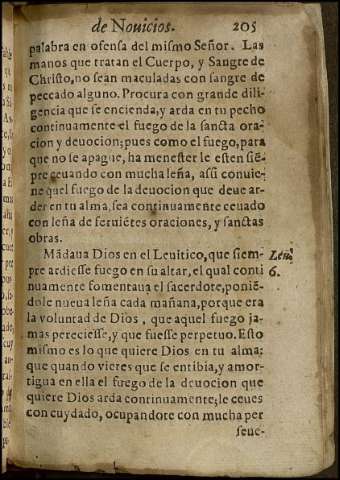 de Nouicios. 205
palabra en ofensa del mismo Señor. Las
manos que tratan el Cuerpo, y Sangre de
Christo, no sean maculadas con sangre de
peccado alguno. Procura con grande dili-
gencia que se encienda, y arda en tu pecho
continuamente el fuego de la sancta ora-
cion y deuocion; pues como el fuego, para
que no se apague, ha menester le esten siē-
pre ceuando con mucha leña, assi conuie-
ne q̃ el fuego de la deuocion que deue ar-
der en tu alma, sea continuamente ceuado
con leña de feruiētes oraciones, y sanctas
obras.
Mādaua Dios en el Leuitico, que siem- Leui.
pre ardiesse fuego en su altar, el qual conti 6.
nuamente fomentaua el sacerdote, poniē-
dole nueua leña cada mañana, porque era
la voluntad de Dios, que aquel fuego ja-
mas pereciesse, y que fuesse perpetuo. Esto
mismo es lo que quiere Dios en tu alma;
que quando vieres que se entibia, y amor-
tigua en ella el fuego de la deuocion que
quiere Dios arda continuamente; le ceues
con cuydado, ocupandote con mucha per
seue-